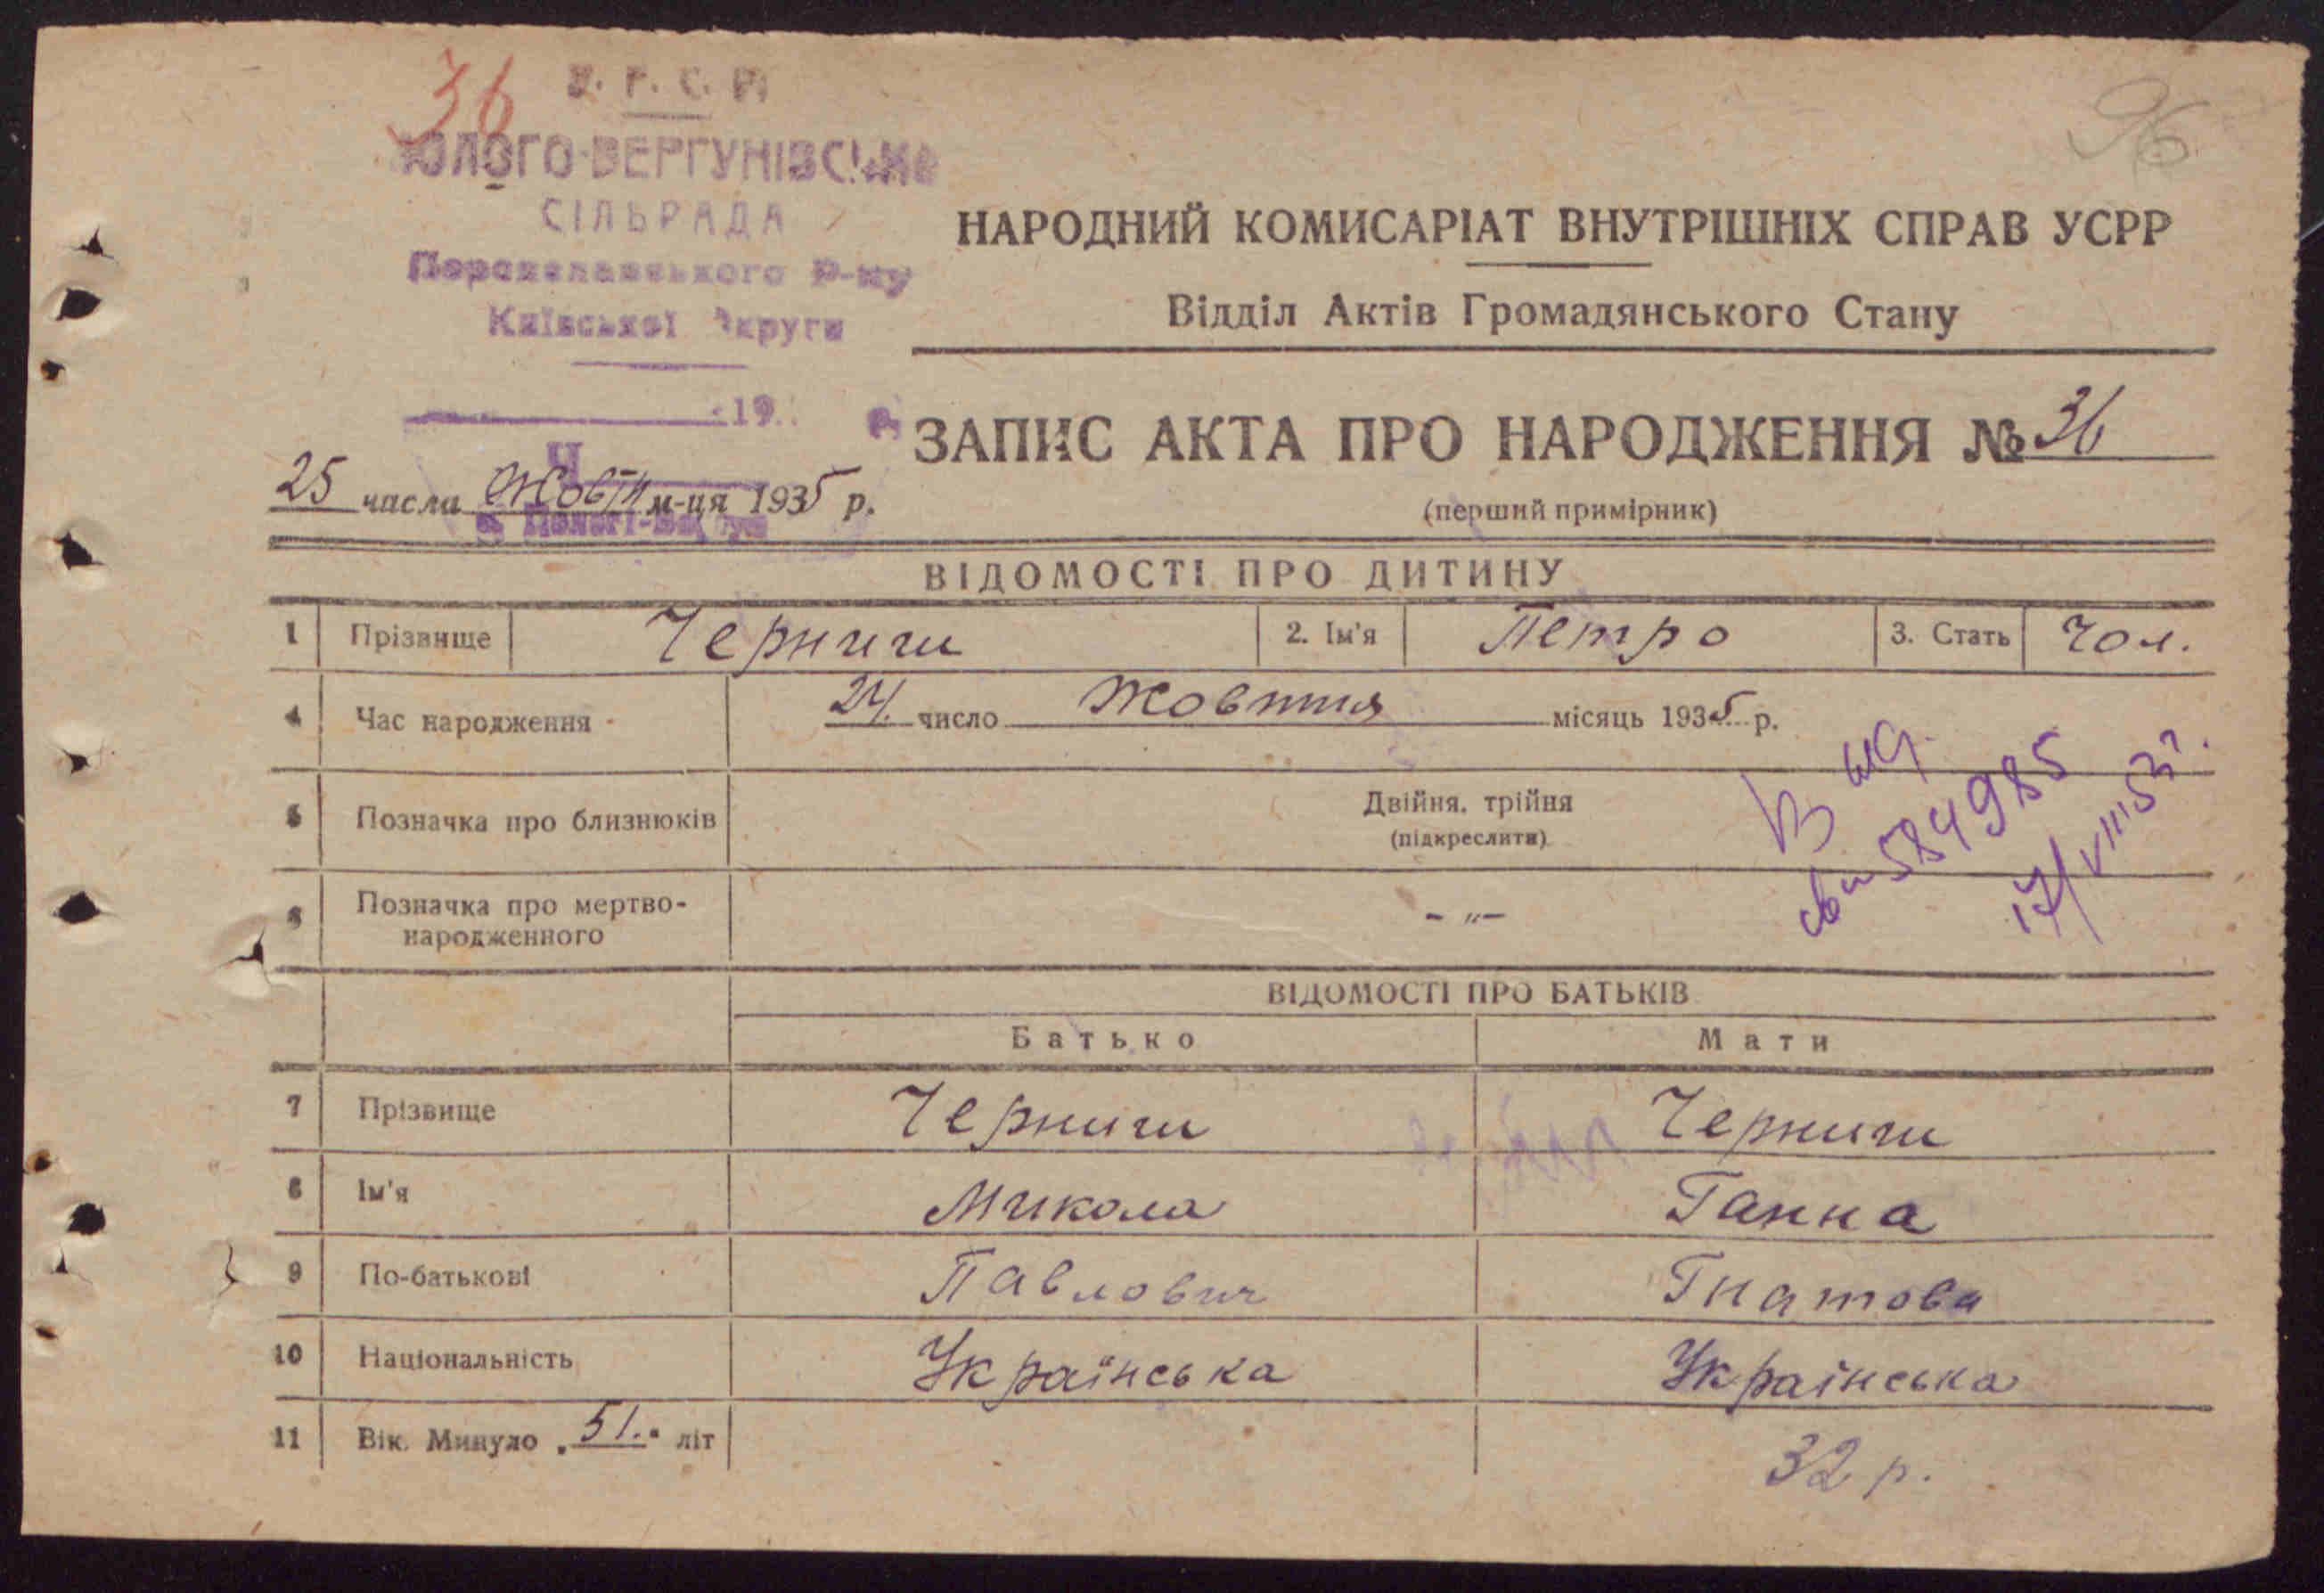 36
У. Р. С. Р.
ПОЛОГО-ВЕРГУНІВСЬКА
СІЛЬРАДА
Переяславського Р-ну
Київської Округи
19 р.
Ч
96
НАРОДНИЙ КОМИСАРІАТ ВНУТРІШНІХ СПРАВ УСРР
Відділ Актів Громадянського Стану
ЗАПИС АКТА ПРО НАРОДЖЕННЯ № 36
(перший примірник)
25 числа Жовтн м-ця 1935 р.
ВІДОМОСТІ ПРО ДИТИНУ
1 Прізвище Черниш 2. Ім'я Петро 3. Стать чол.
4 Час народження 24 число Жовтня місяць 1935 р.
5 Позначка про близнюків Двійня, трійня
(підкреслити)
6 Позначка про мертво-
народженного - „ -
584985
17/VIII 53 г.
ВІДОМОСТІ ПРО БАТЬКІВ
Батько Мати
7 Прізвище Черниш Черниш
8 Ім'я Микола Ганна
9 По-батькові Павлович Гнатова
10 Національність Українська Українська
11 Вік. Минуло „51." літ 32 р.